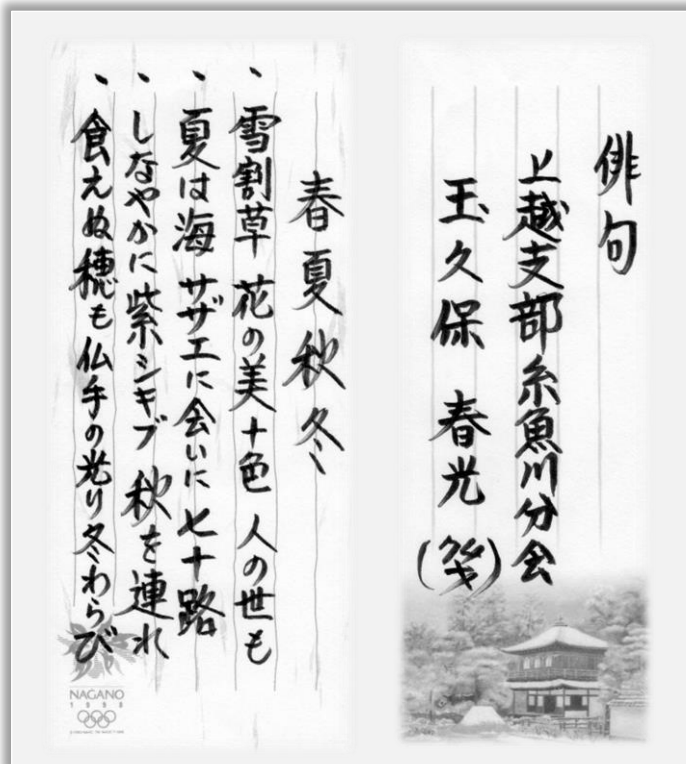 俳句
上越支部糸魚川分会
玉久保 春光(筆)
春夏秋冬
・雪割草 花の美十色 人の世も
・夏は海 サザエに会いに 七十路
・しなやかに紫シキブ 秋を連れ
・食えぬ穂も仏手の光り冬わらび
NAGANO
1998